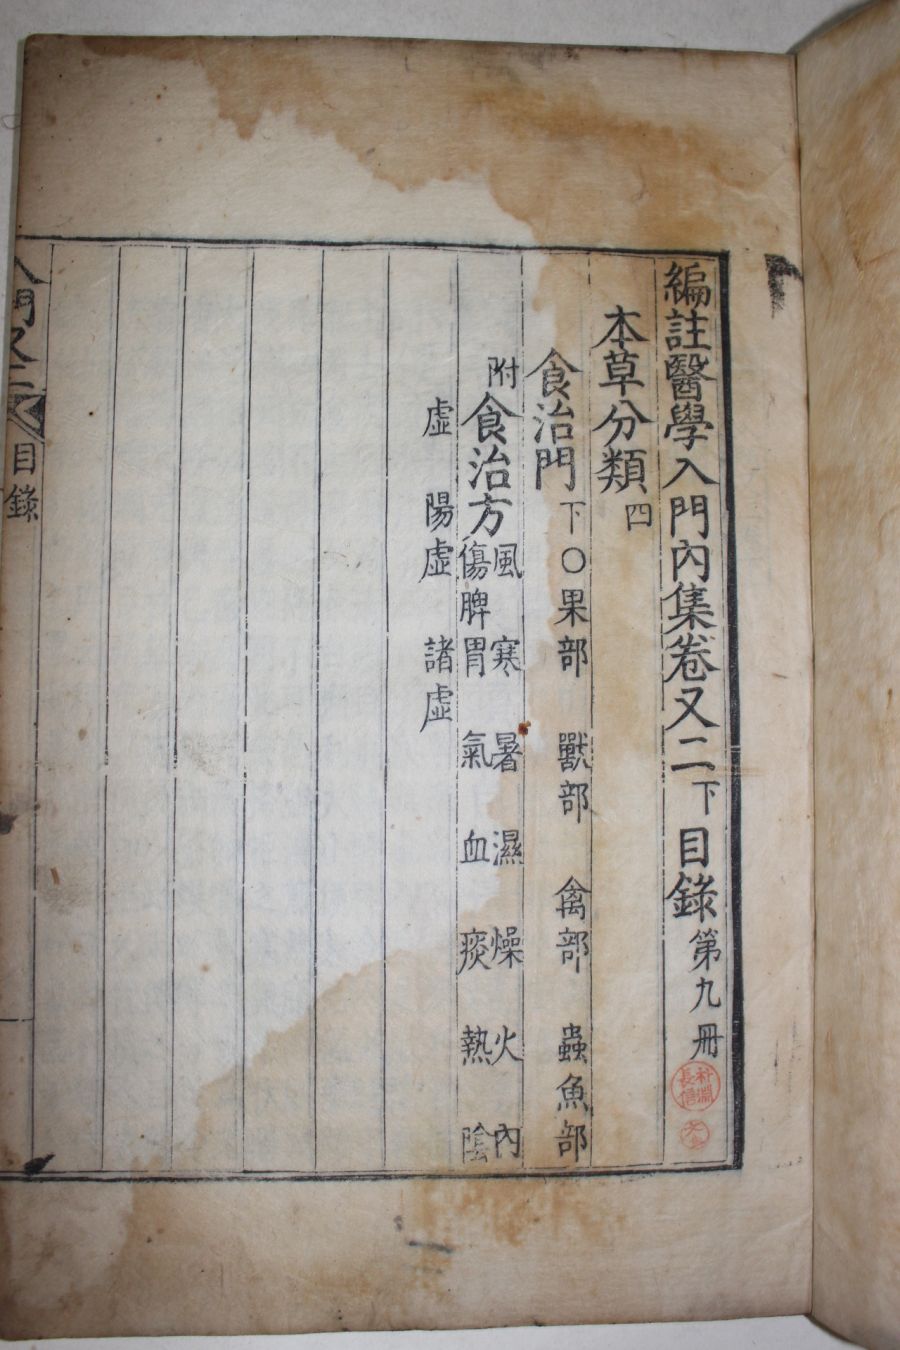 編註醫學入門內集卷又二下目錄第九冊
本草分類四
食治門下○果部 獸部 禽部 蟲魚部
附食治方風 寒 暑 濕 燥 火 內
傷脾胃 氣 血 痰 熱 陰
虛 陽虛 諸虛
目錄